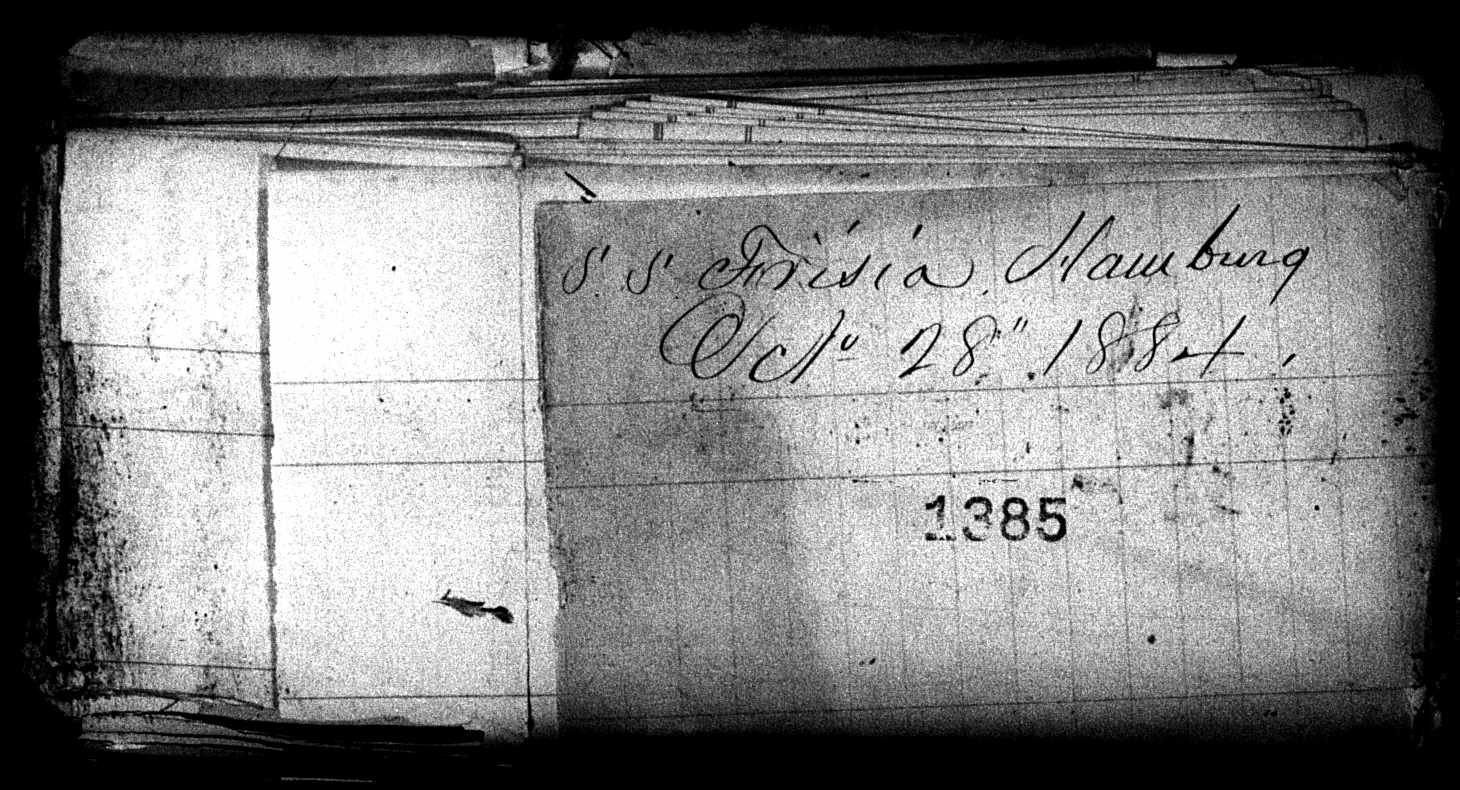 S. S. Frisia, Hamburg
Oct° 28" 1884.
1385